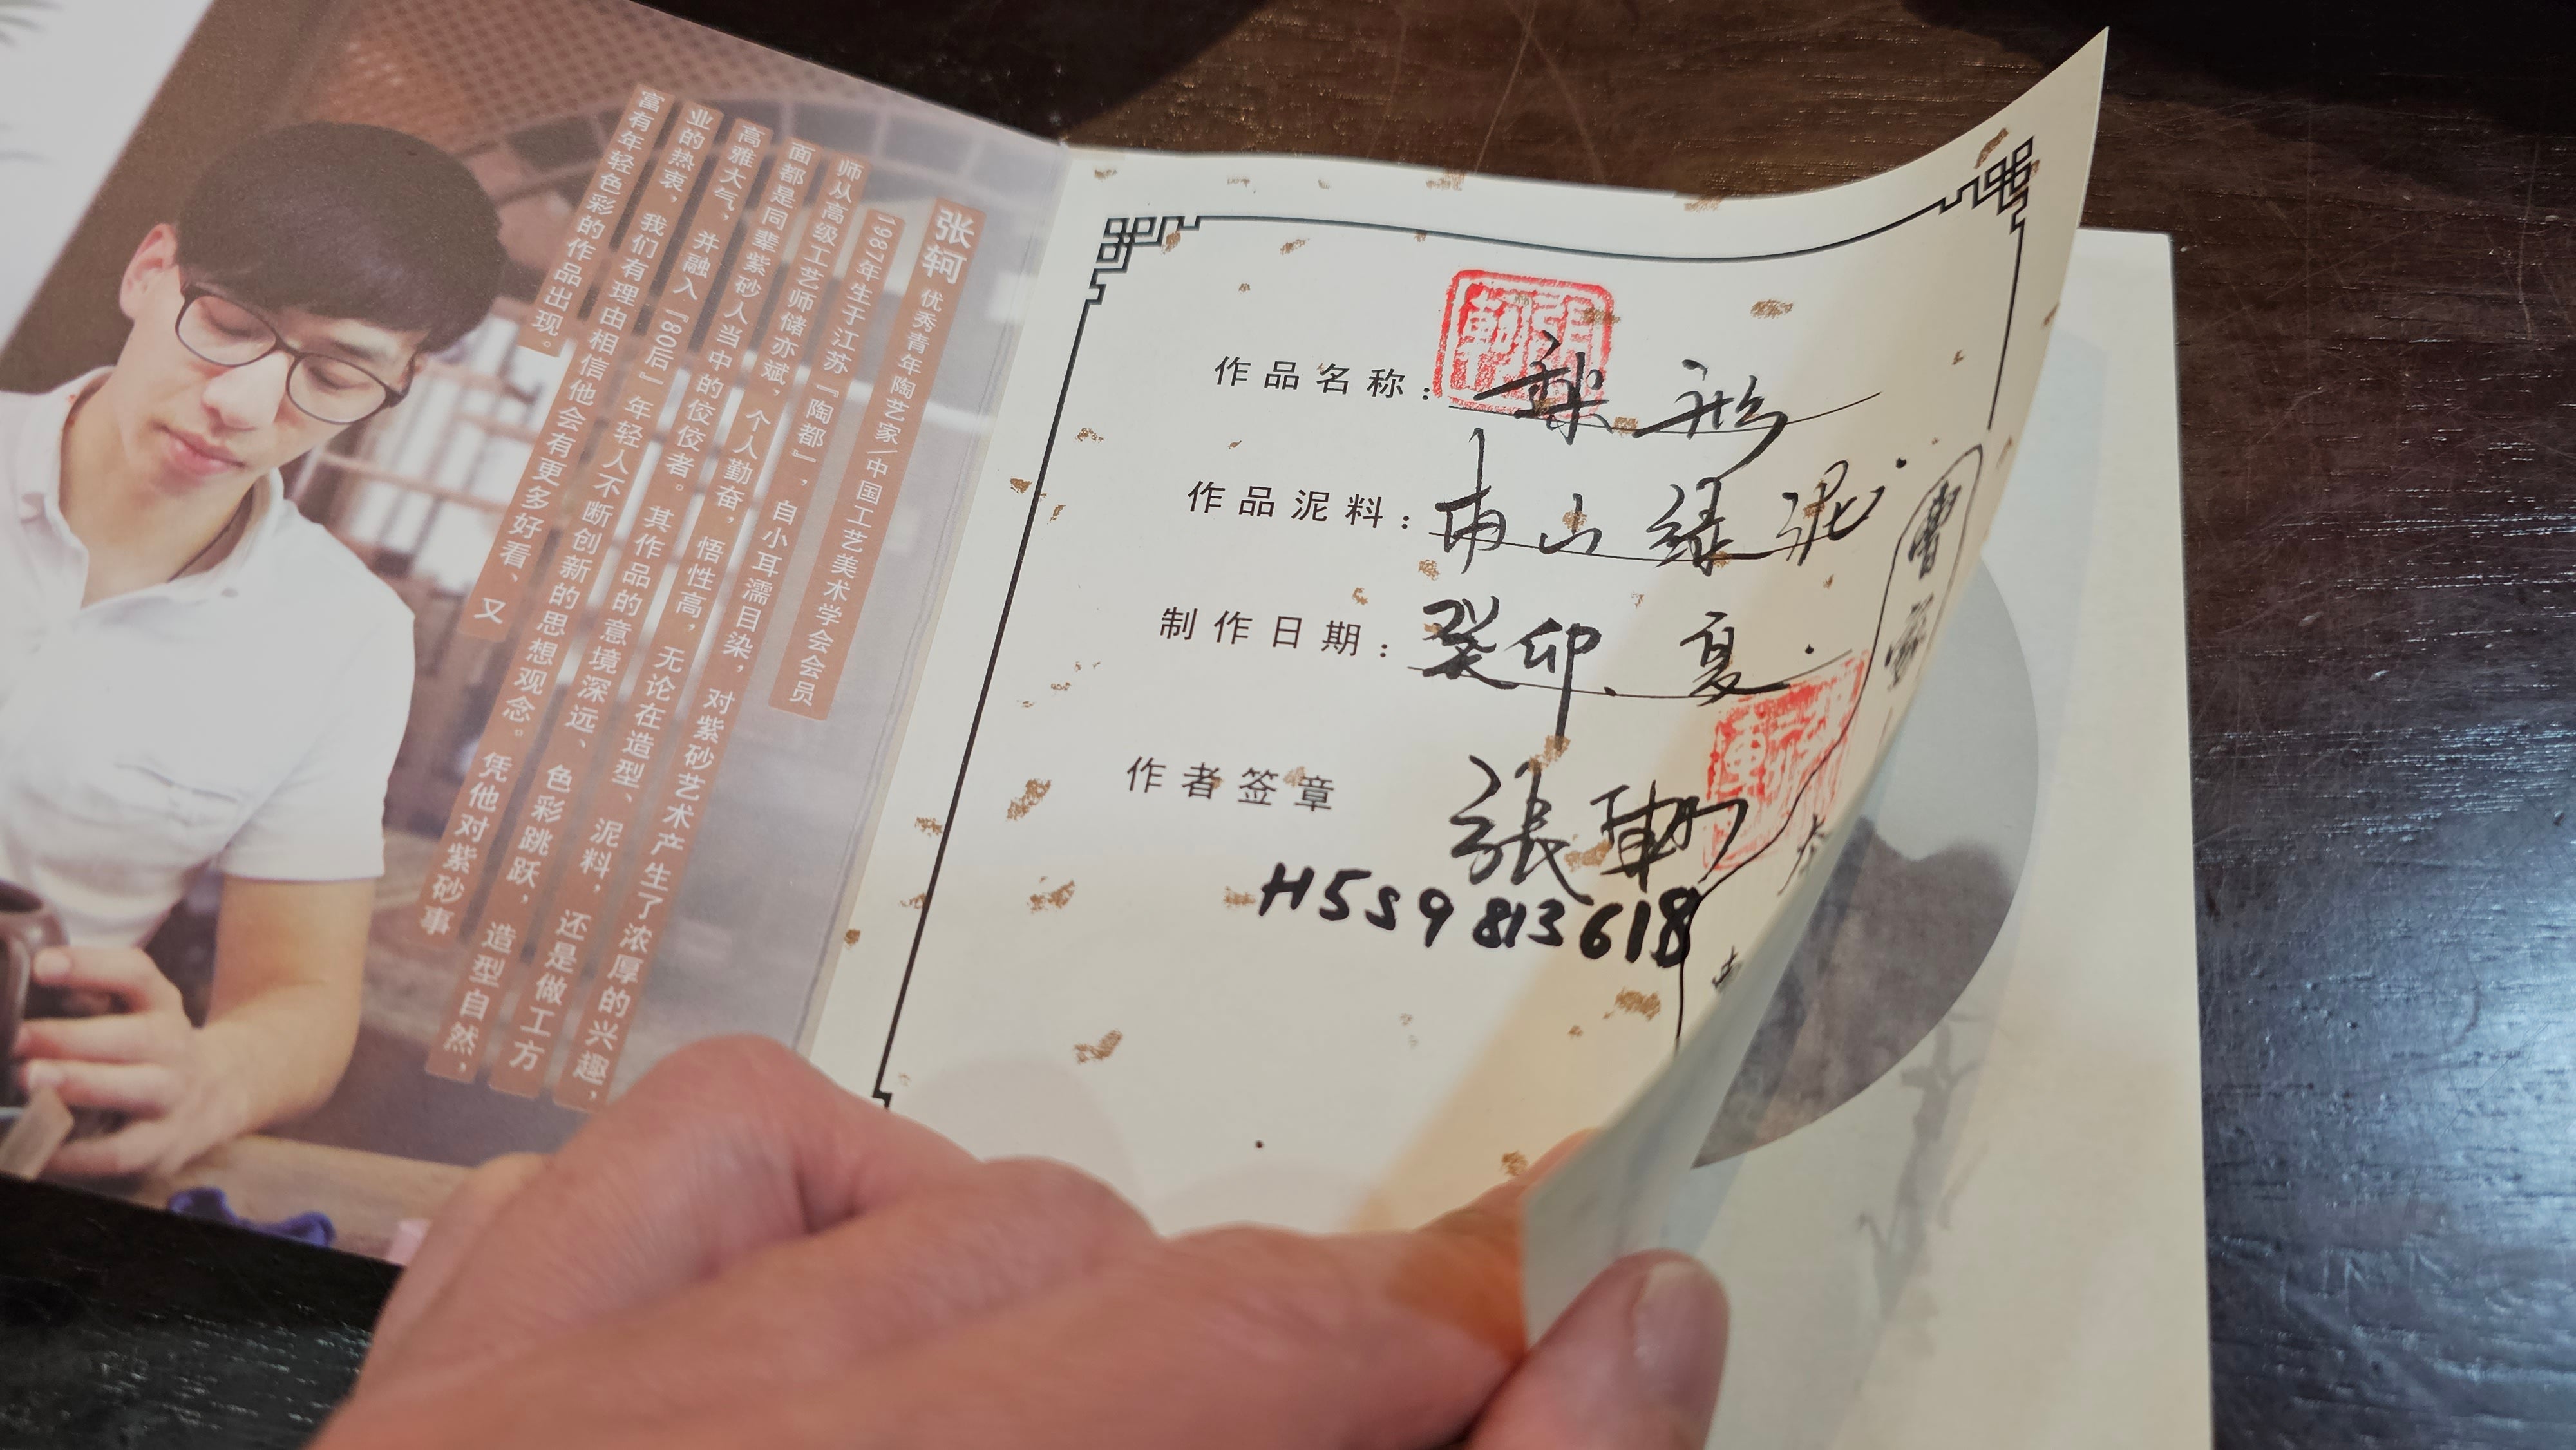 张轲 优秀青年陶艺家/中国工艺美术学会会员
1987年生于江苏『陶都』，自小耳濡目染，对紫砂艺术产生了浓厚的兴趣，
师从高级工艺师储亦斌，个人勤奋，悟性高，无论在造型、泥料，还是做工方
面都是同辈紫砂人当中的佼佼者。其作品的意境深远、色彩跳跃，造型自然，
高雅大气，并融入『80后』年轻人不断创新的思想观念。凭他对紫砂事
业的热衷，我们有理由相信他会有更多好看、又
富有年轻色彩的作品出现。
作品名称：梨形
作品泥料：南山绿泥.
制作日期：癸卯.夏.
作者签章 張軻
H5S9813618